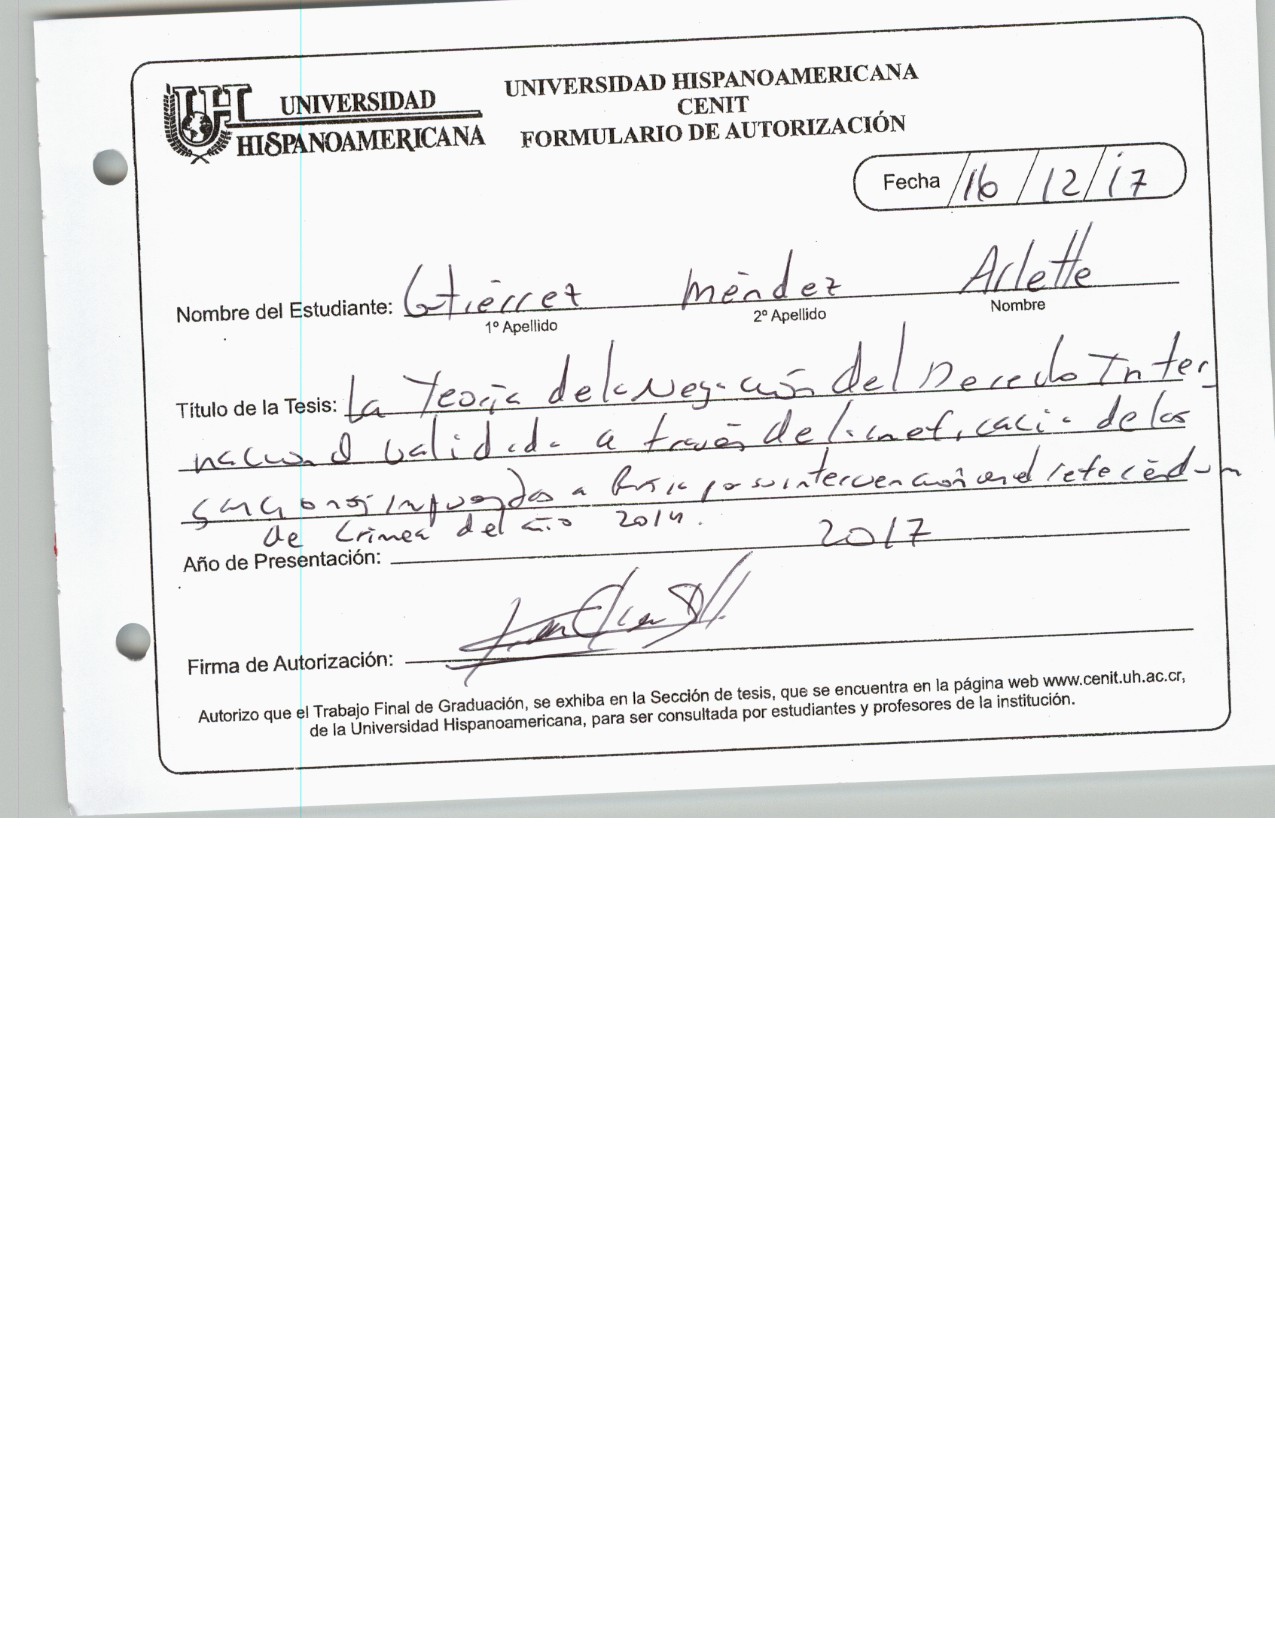 UNIVERSIDAD HISPANOAMERICANA
CENIT
FORMULARIO DE AUTORIZACIÓN
UH UNIVERSIDAD
HISPANOAMERICANA
Fecha /16/12/17
Nombre del Estudiante: Gutiérrez Méndez Arlette
1º Apellido 2º Apellido Nombre
Título de la Tesis: La Teoría de la Negación del Derecho Inter_
nacional validada a través de la ineficacia de las
sanciones impuestas a Rusia por su intervención en el referéndum
de Crimea del año 2014.
Año de Presentación: 2017
Firma de Autorización:
Autorizo que el Trabajo Final de Graduación, se exhiba en la Sección de tesis, que se encuentra en la página web www.cenit.uh.ac.cr,
de la Universidad Hispanoamericana, para ser consultada por estudiantes y profesores de la institución.